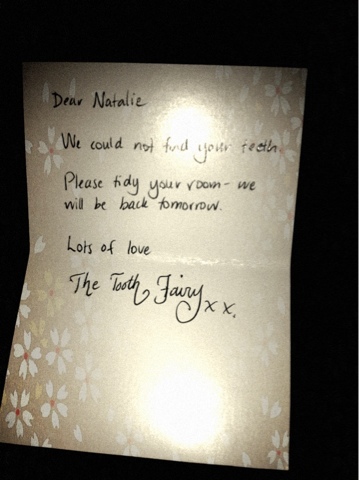 Dear Natalie
We could not find your teeth.
Please tidy your room - we
will be back tomorrow.
Lots of love
The Tooth Fairy xx.